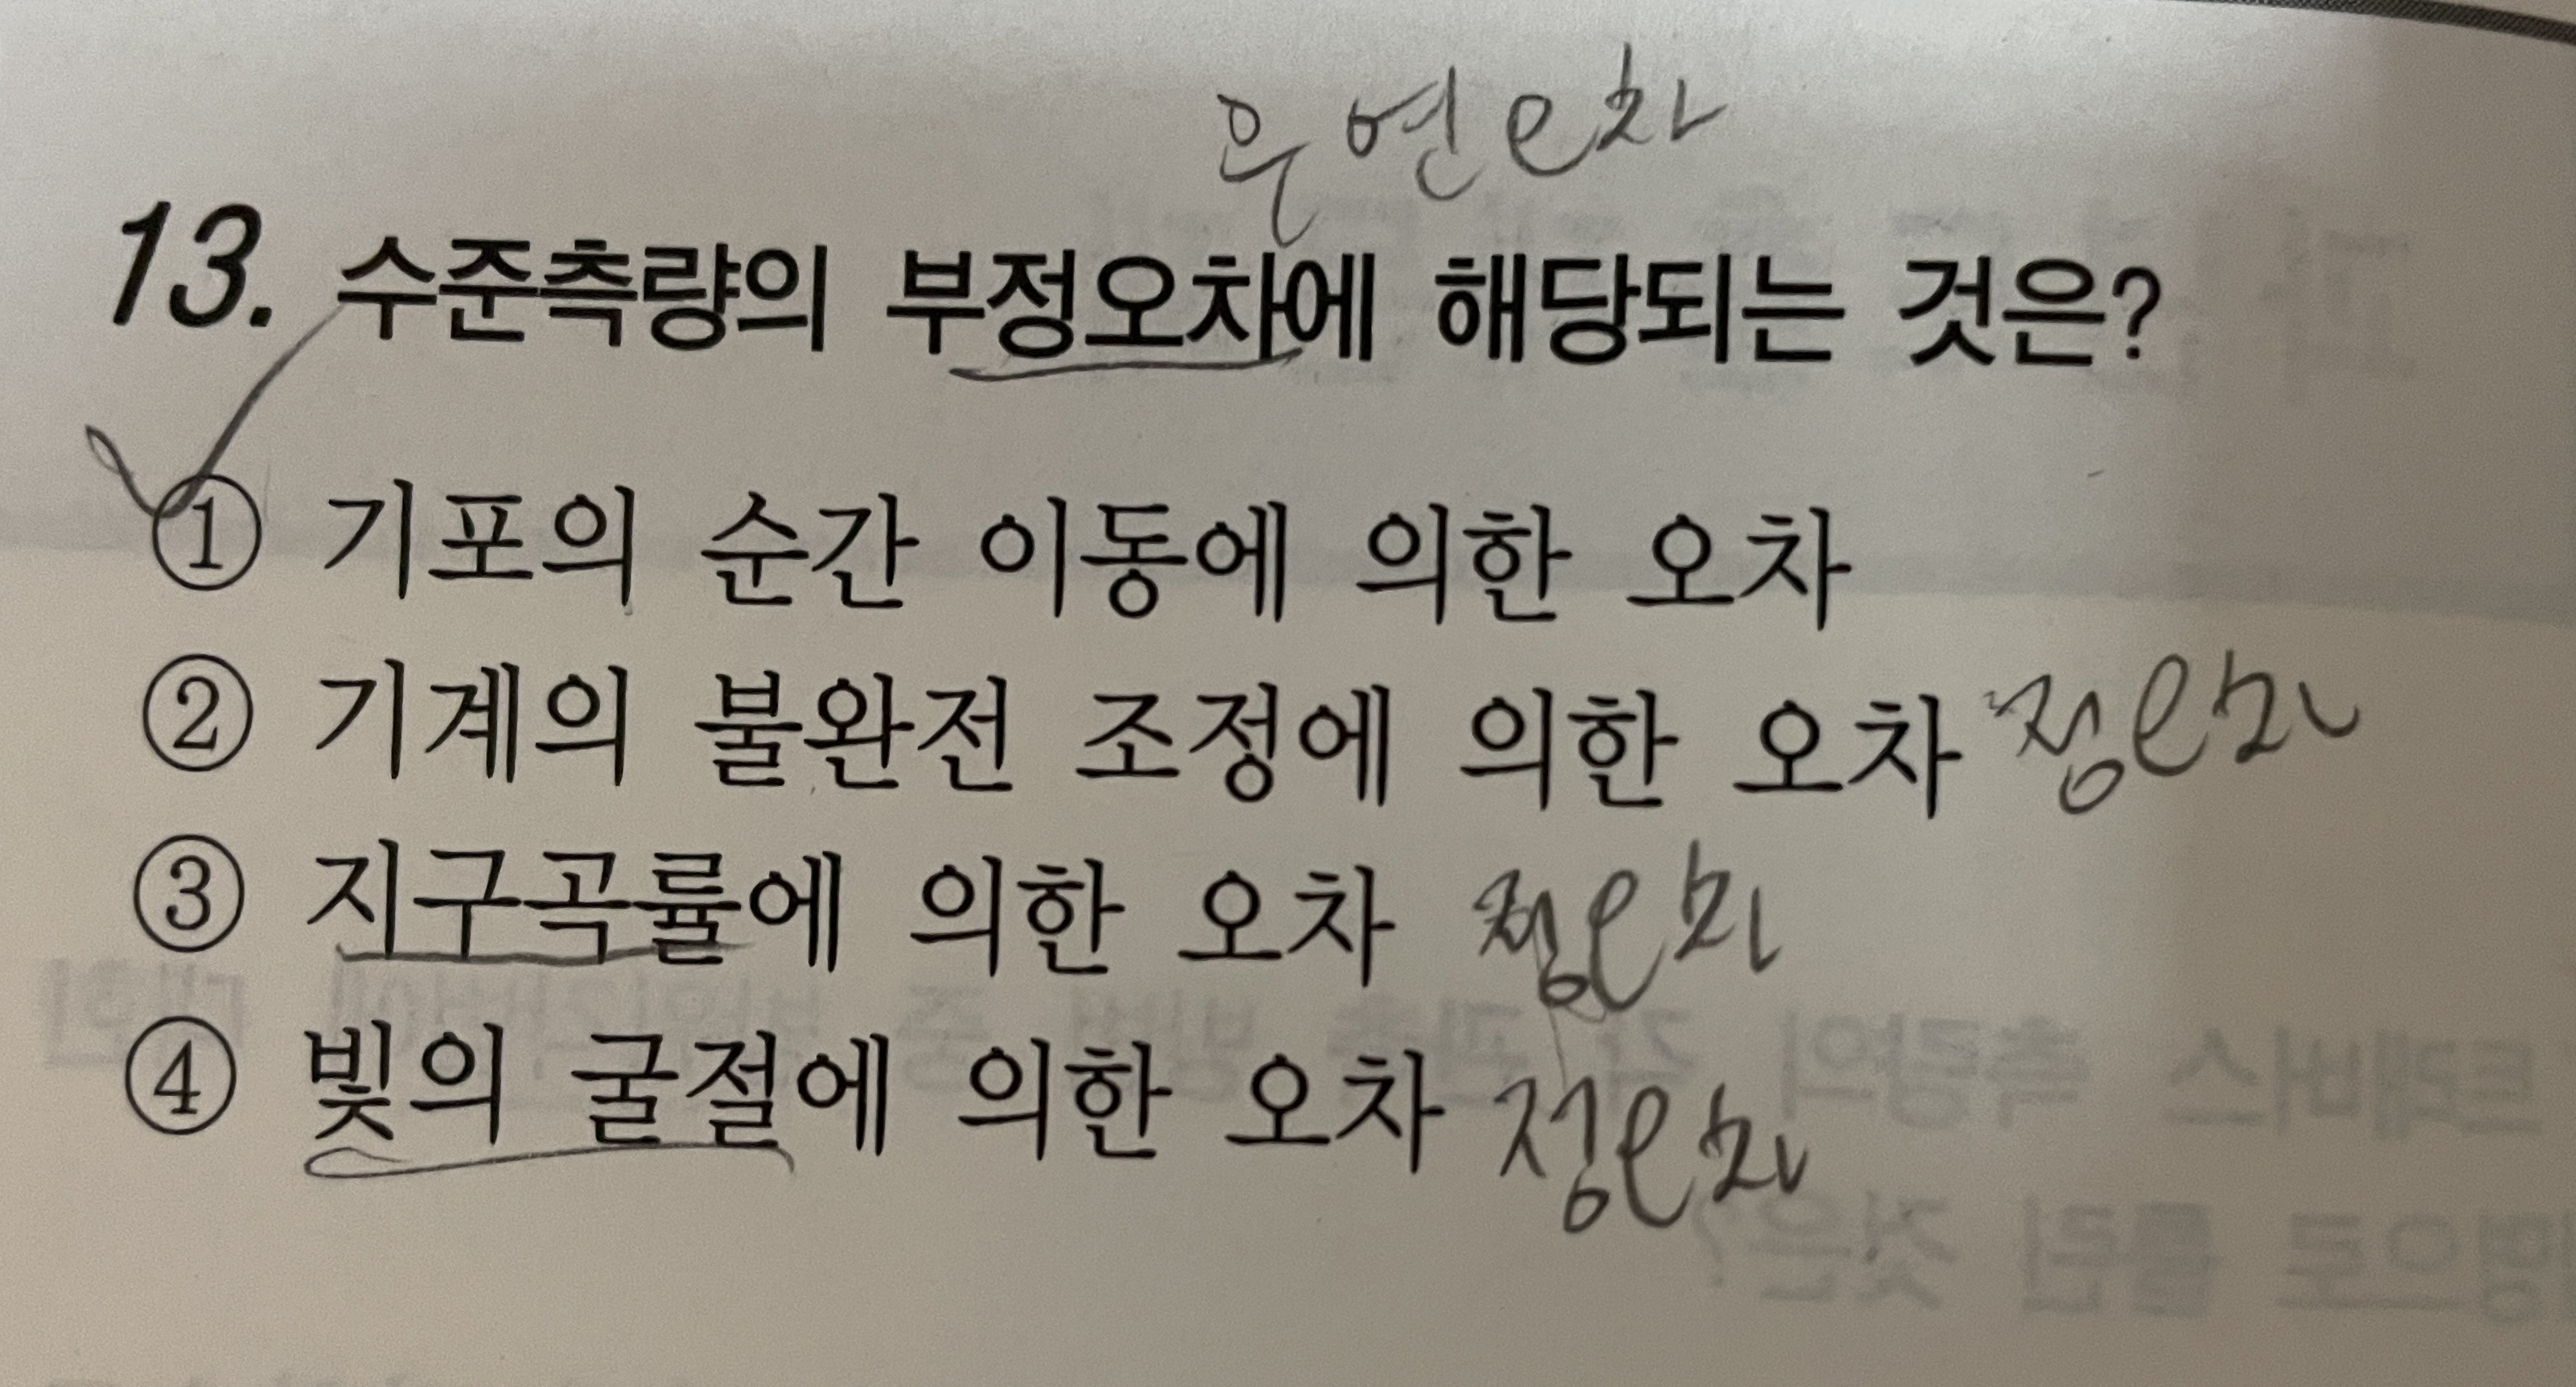 우연오차
13. 수준측량의 부정오차에 해당되는 것은?
① 기포의 순간 이동에 의한 오차
② 기계의 불완전 조정에 의한 오차 정오차
③ 지구곡률에 의한 오차 정오차
④ 빛의 굴절에 의한 오차 정오차